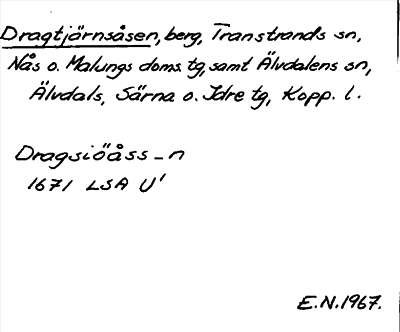 Dragtjärnsåsen, berg, Transtrands sn,
Nås o. Malungs doms. tg, samt Älvdalens sn,
Älvdals, Särna o. Idre tg, Kopp. l.
Dragsiöåss-n
1671 LSA U'
E.N. 1967.